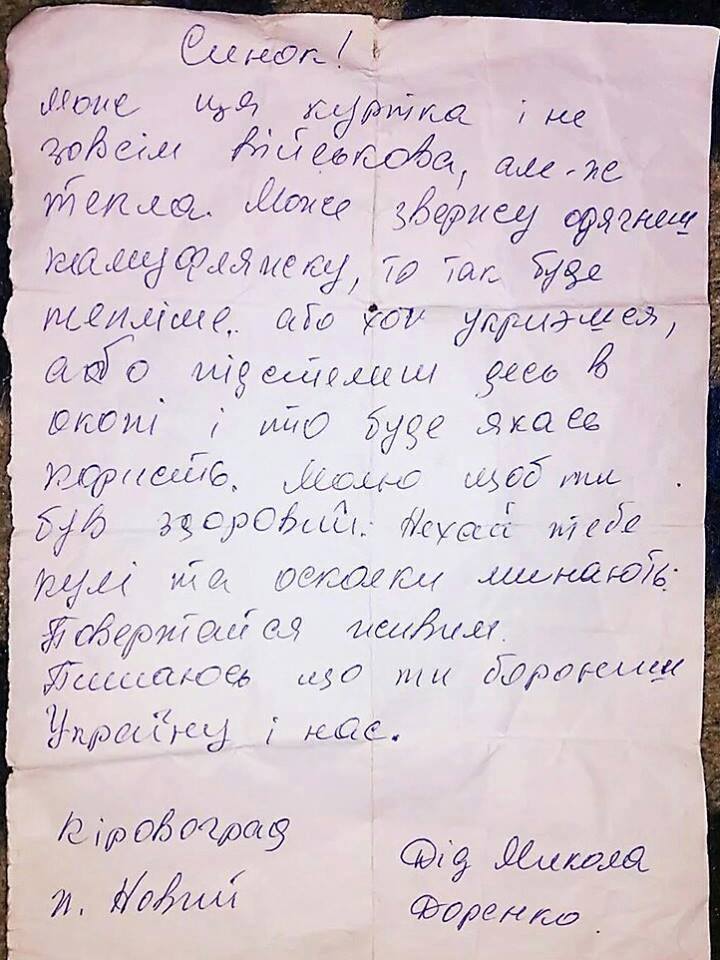 Синок!
Може ця куртка і не
зовсім військова, але-ж
тепла. Може зверху одягнеш
камуфляжку, то так буде
тепліше. або хоч укриєшся,
або підстелиш десь в
окопі і то буде якась
користь. Молю щоб ти
був здоровий. Нехай тебе
кулі та осколки минають.
Повертайся живим.
Пишаюсь що ти борониш
Україну і нас.
Кіровоград
п. Новий
Дід Микола
Доренко.